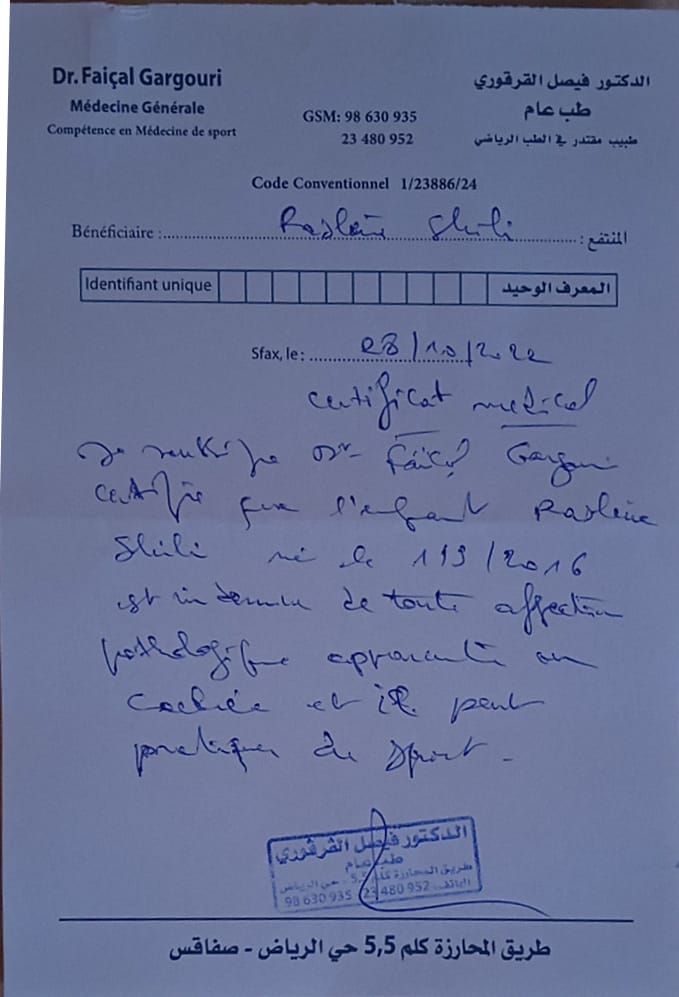 Dr. Faiçal Gargouri
Médecine Générale
Compétence en Médecine de sport
الدكتور فيصل القرقوري
طب عام
طبيب مقتدر في الطب الرياضي
GSM: 98 630 935
23 480 952
Code Conventionnel 1/23886/24
Bénéficiaire : Raslène Skili المنتفع :
Identifiant unique المعرف الوحيد
Sfax, le : 28/10/2022
certificat medical
Je soussigné Dr Faiçal Gargouri
certifie que l'enfant Raslène
Skili né le 1/9/2016
est indemne de toute affection
pathologique apparente ou
cachée et il peut
pratiquer du sport.
الدكتور فيصل القرقوري
طب عام
طريق المحارزة كلم 5,5 حي الرياض
الهاتف: 23 480 952 / 98 630 935
طريق المحارزة كلم 5,5 حي الرياض - صفاقس